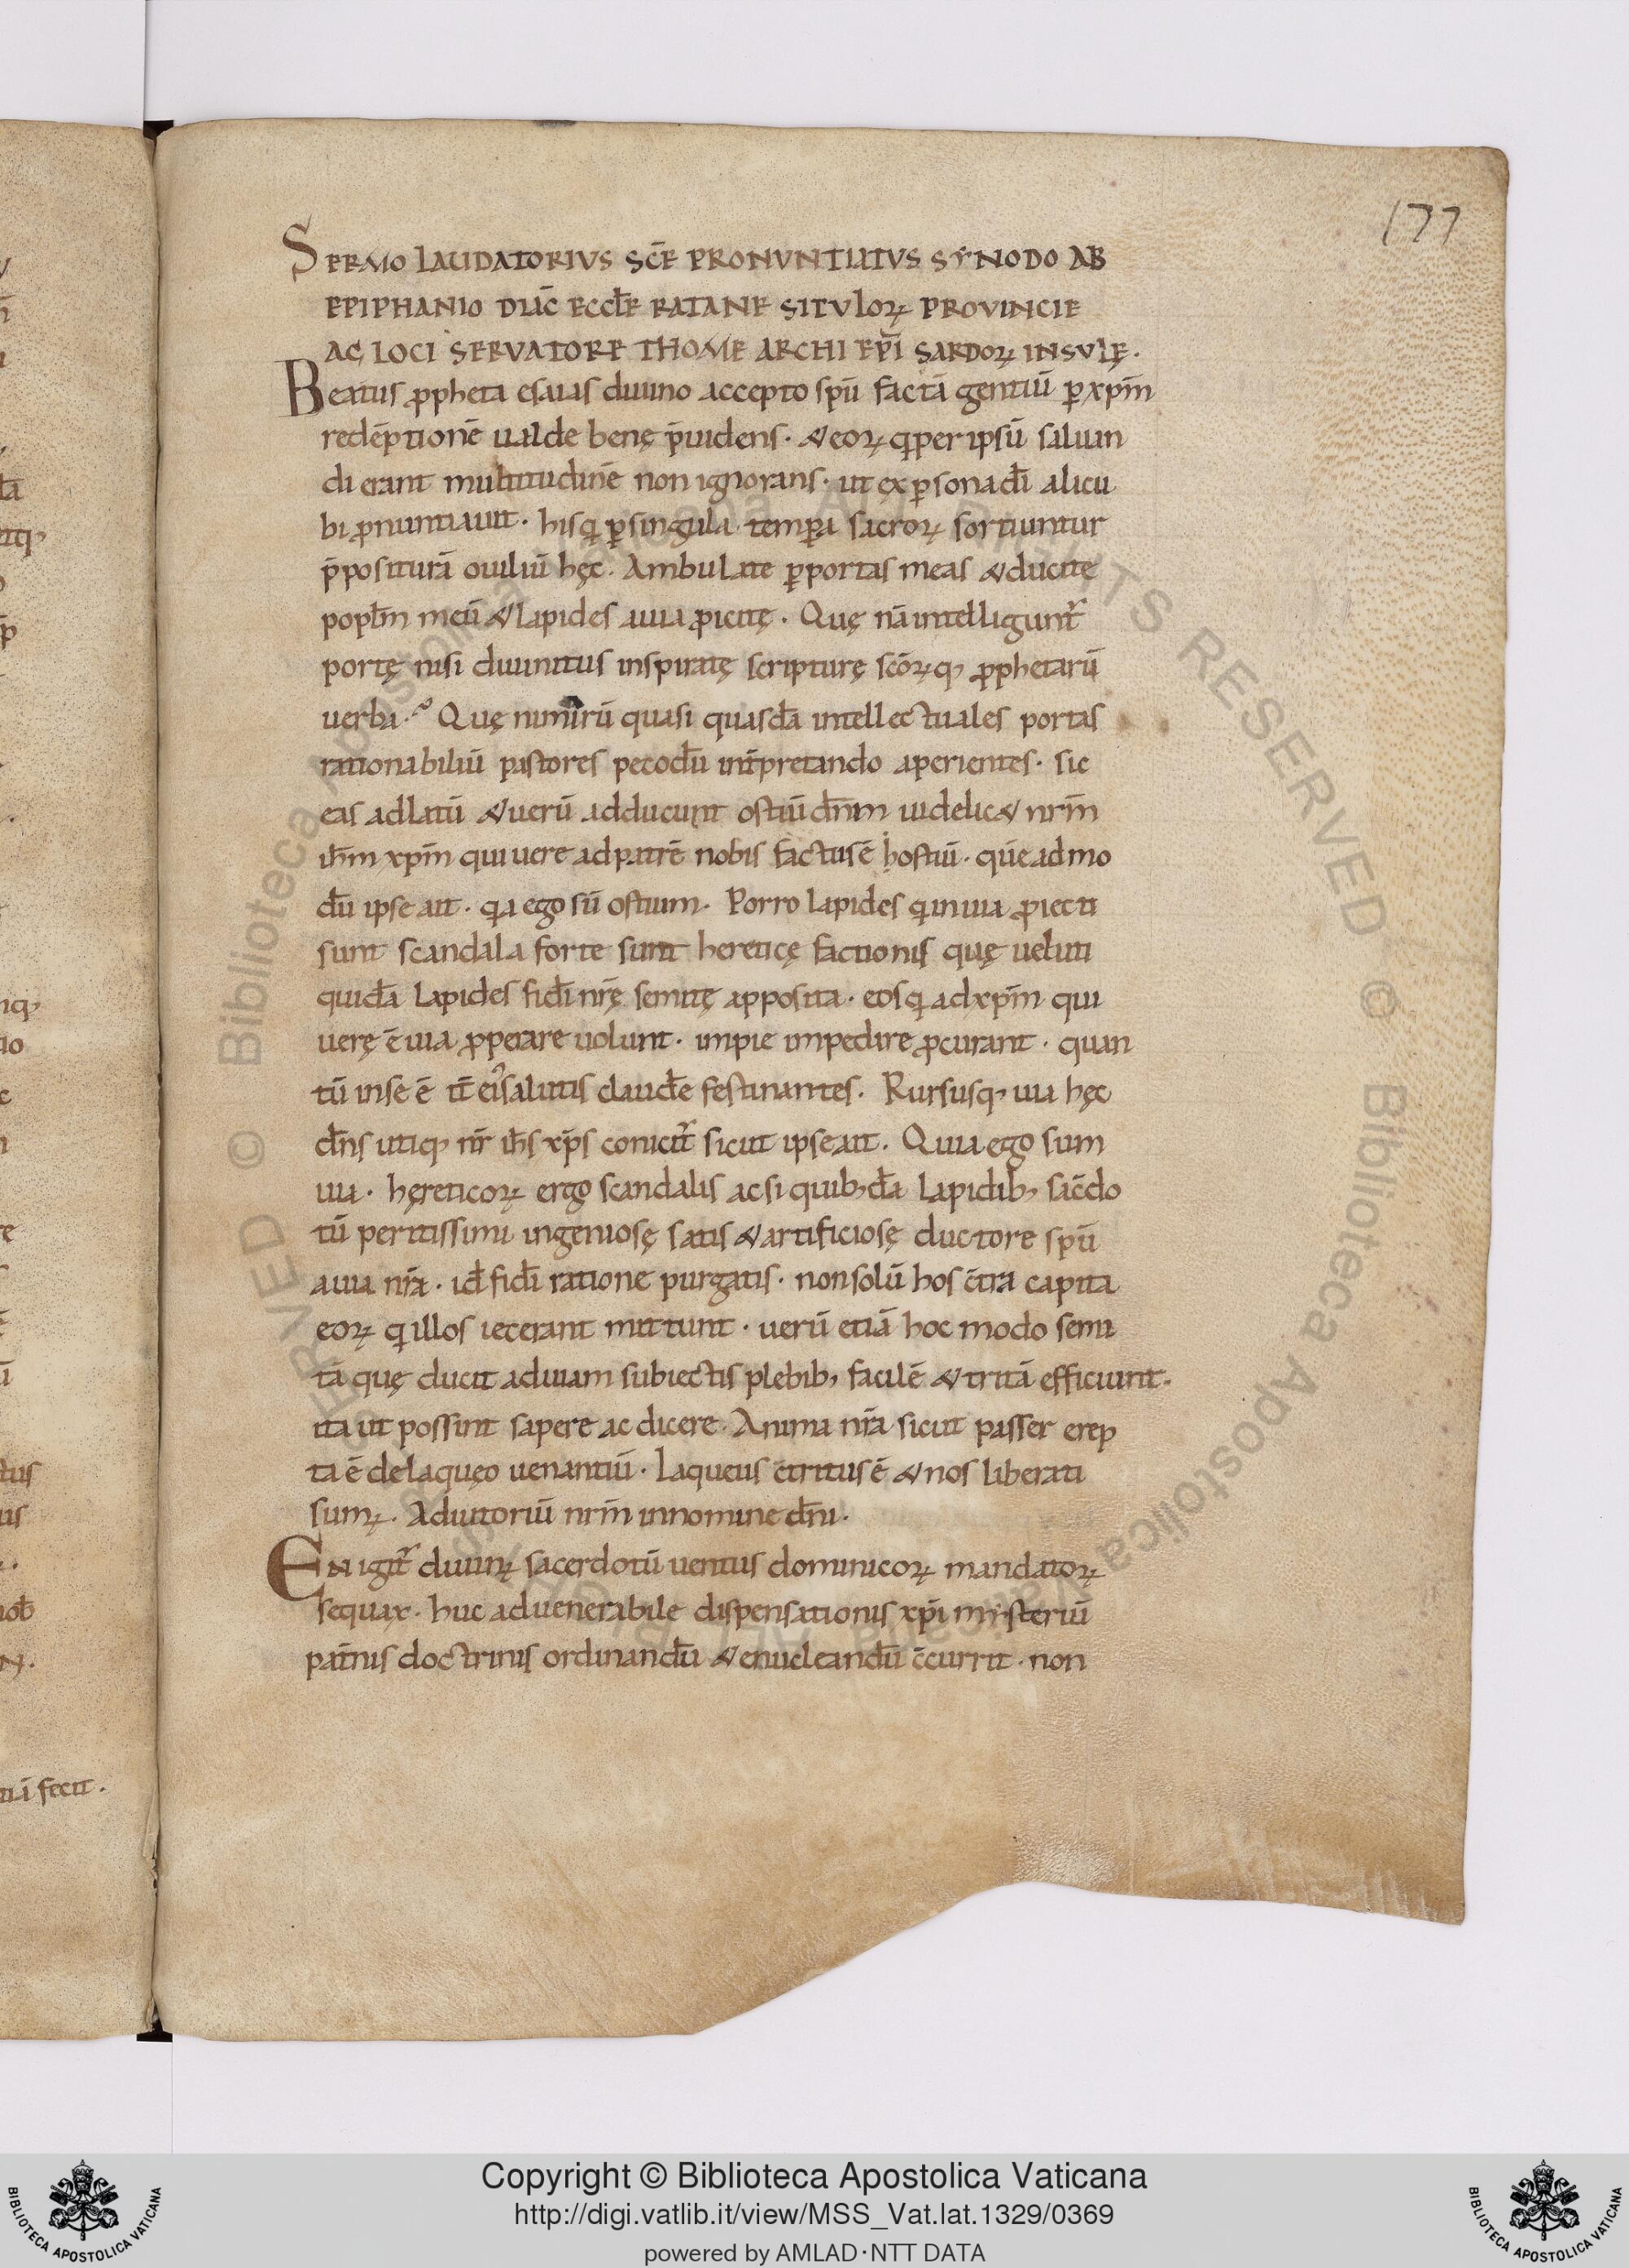 177
SERMO LAUDATORIVS SC̄E PRONVNTIATVS SYNODO AB
EPIPHANIO DIAC̄ ECCL̄E RATANE SITVLOꝜ PROVINCIE
AC LOCI SERVATORE THOME ARCHI EP̄I SARDOꝜ INSVLĘ.
Beatus ꝓpheta esaias diuino accepto spū factā gentiū ꝑ xp̄m
redēptionē ualde benę p̄uidens. & eoꝝ q per ipsū saluan
di erant multitudinē non ignorans. ut ex ꝑsona dī alicu
bi ꝓnuntiauit. hisq ꝑ singula temꝑa sacroꝝ sortiuntur
p̄positurā ouiliū hęc. Ambulate ꝑ portas meas & ducite
popl̄m meū & lapides auia ꝓicitę. Quę nā intelligunt᷑
portę nisi diuinitus inspiratę scripturę scōꝝq ꝓphetarū
uerba. Quę nimirū quasi quasdā intellectuales portas
rationabiliū pastores pecodū int̄pretando aperientes. sic
eas ad latū & uerū adducunt ostiū dn̄m uidelic& nr̄m
ih̄m xp̄m qui uere ad patrē nobis factus ē hostiū. quēadmo
dū ipse ait. qa ego sū ostium. Porro lapides q in uia ꝓiecti
sunt scandala forte sunt heretice̜ factionis quę ueluti
quidā lapides fidī nr̄ę semitę apposita. eosq ad xp̄m qui
uerę ē uia ꝓperare uolunt. impie impedire ꝓcurant. quan
tū in se ē it̄ eis salutis claudē festinantes. Rursusq uia hęc
dn̄s utiq nr̄ ih̄s xp̄s conicit᷑ sicut ipse ait. Quia ego sum
uia. hęreticoꝝ ergo scandalis ac si quib; dā lapidib; sac̄do
tū peritissimi ingeniosę satis & artificiosę ductore spū
a uia nr̄a. id̄ fidī ratione purgatis. non solū hos c̄tra capita
eoꝝ q illos iecerant mittunt. uerū etiā hoc modo semi
tā quę ducit ad uiam subiectis plebib; facilē & tritā efficiunt.
ita ut possint sapere ac dicere. Anima nr̄a sicut passer erep
ta ē de laquęo uenantiū. Laqueus c̄tritus ē & nos liberati
sumꝰ. Adiutoriū nr̄m in nomine dn̄i.
EN igit᷑ diuinꝰ sacerdotū uentus dominicoꝝ mandatoꝝ
sequax. huc ad uenerabile dispensationis xp̄i mysteriū
pat̄nis doctrinis ordinandū & enucleandū c̄currit. non
uā fecit.
Copyright © Biblioteca Apostolica Vaticana
http://digi.vatlib.it/view/MSS_Vat.lat.1329/0369
powered by AMLAD·NTT DATA
BIBLIOTECA APOSTOLICA VATICANA
BIBLIOTECA APOSTOLICA VATICANA